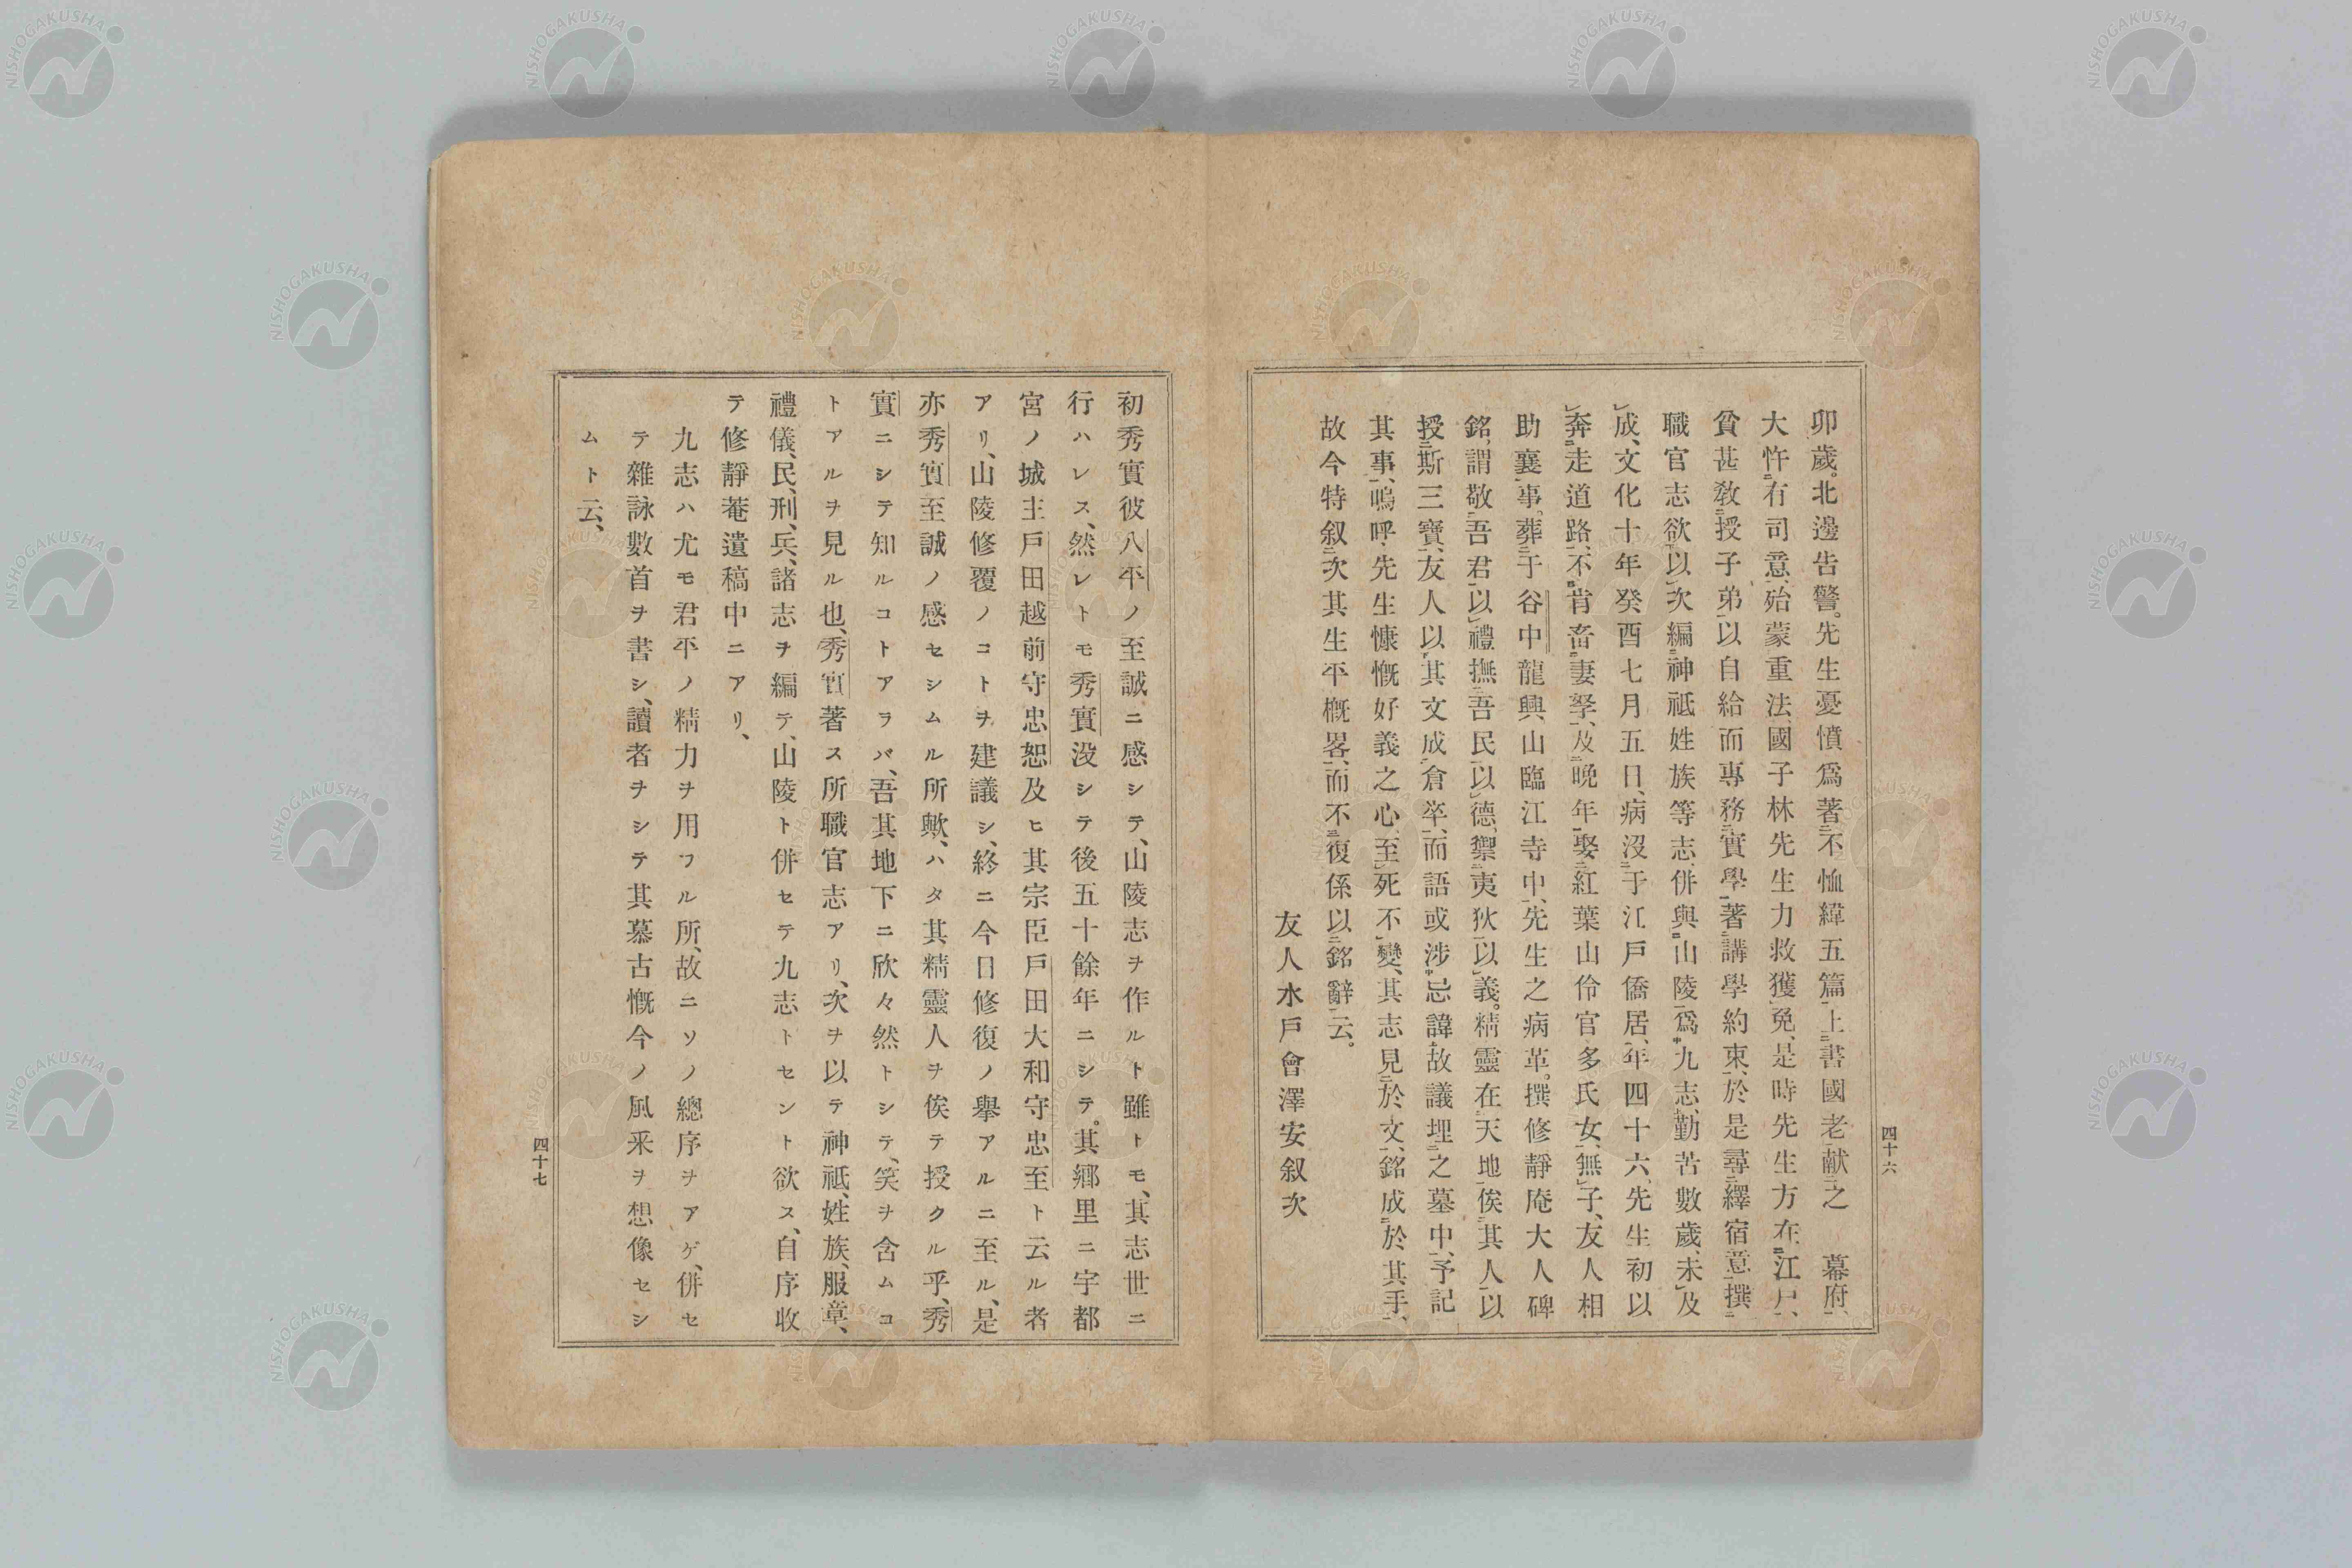 卯歲。北邊告警。先生憂憤爲著不恤緯五篇上書國老献之　幕府、
大忤有司意、殆蒙重法、國子林先生力救獲免、是時先生方在江戶、
貧甚教授子弟以自給而專務實學、著講學約束、於是尋繹宿意撰
職官志欲以次編神祇姓族等志、併與山陵爲九志、勤苦數歲、未及
成、文化十年癸酉七月五日、病沒于江戶僑居、年四十六、先生初以
奔走道路、不肯畜妻孥、及晚年娶紅葉山伶官多氏女、無子、友人相
助襄事。葬于谷中龍興山臨江寺中、先生之病革。撰修靜庵大人碑
銘、謂敬吾君以禮撫吾民以德、禦夷狄以義。精靈在天地俟其人以
授斯三寶、友人以其文成倉卒、而語或涉忌諱故議埋之墓中、予記
其事、嗚呼、先生慷慨好義之心、至死不變、其志見於文、銘成於其手、
故今特叙次其生平概畧、而不復係以銘辭云。
友人水戶會澤安叙次
四十六
初秀實彼八平ノ至誠ニ感シテ、山陵志ヲ作ルト雖トモ、其志世ニ
行ハレス、然レトモ秀實没シテ後五十餘年ニシテ。其鄉里ニ宇都
宮ノ城主戶田越前守忠恕及ヒ其宗臣戶田大和守忠至ト云ル者
アリ、山陵修覆ノコトヲ建議シ、終ニ今日修復ノ擧アルニ至ル、是
亦秀實至誠ノ感セシムル所歟、ハタ其精靈人ヲ俟テ授クル乎、秀
實ニシテ知ルコトアラバ、吾其地下ニ欣々然トシテ、笑ヲ含ムコ
トアルヲ見ル也、秀實著ス所職官志アリ、次ヲ以テ神祇、姓族、服章、
禮儀、民、刑、兵、諸志ヲ編テ、山陵ト併セテ九志トセント欲ス、自序收
テ修靜菴遺稿中ニアリ、
九志ハ尤モ君平ノ精力ヲ用フル所、故ニソノ總序ヲアゲ、併セ
テ雜詠數首ヲ書シ、讀者ヲシテ其慕古慨今ノ風采ヲ想像セシ
ムト云、
四十七